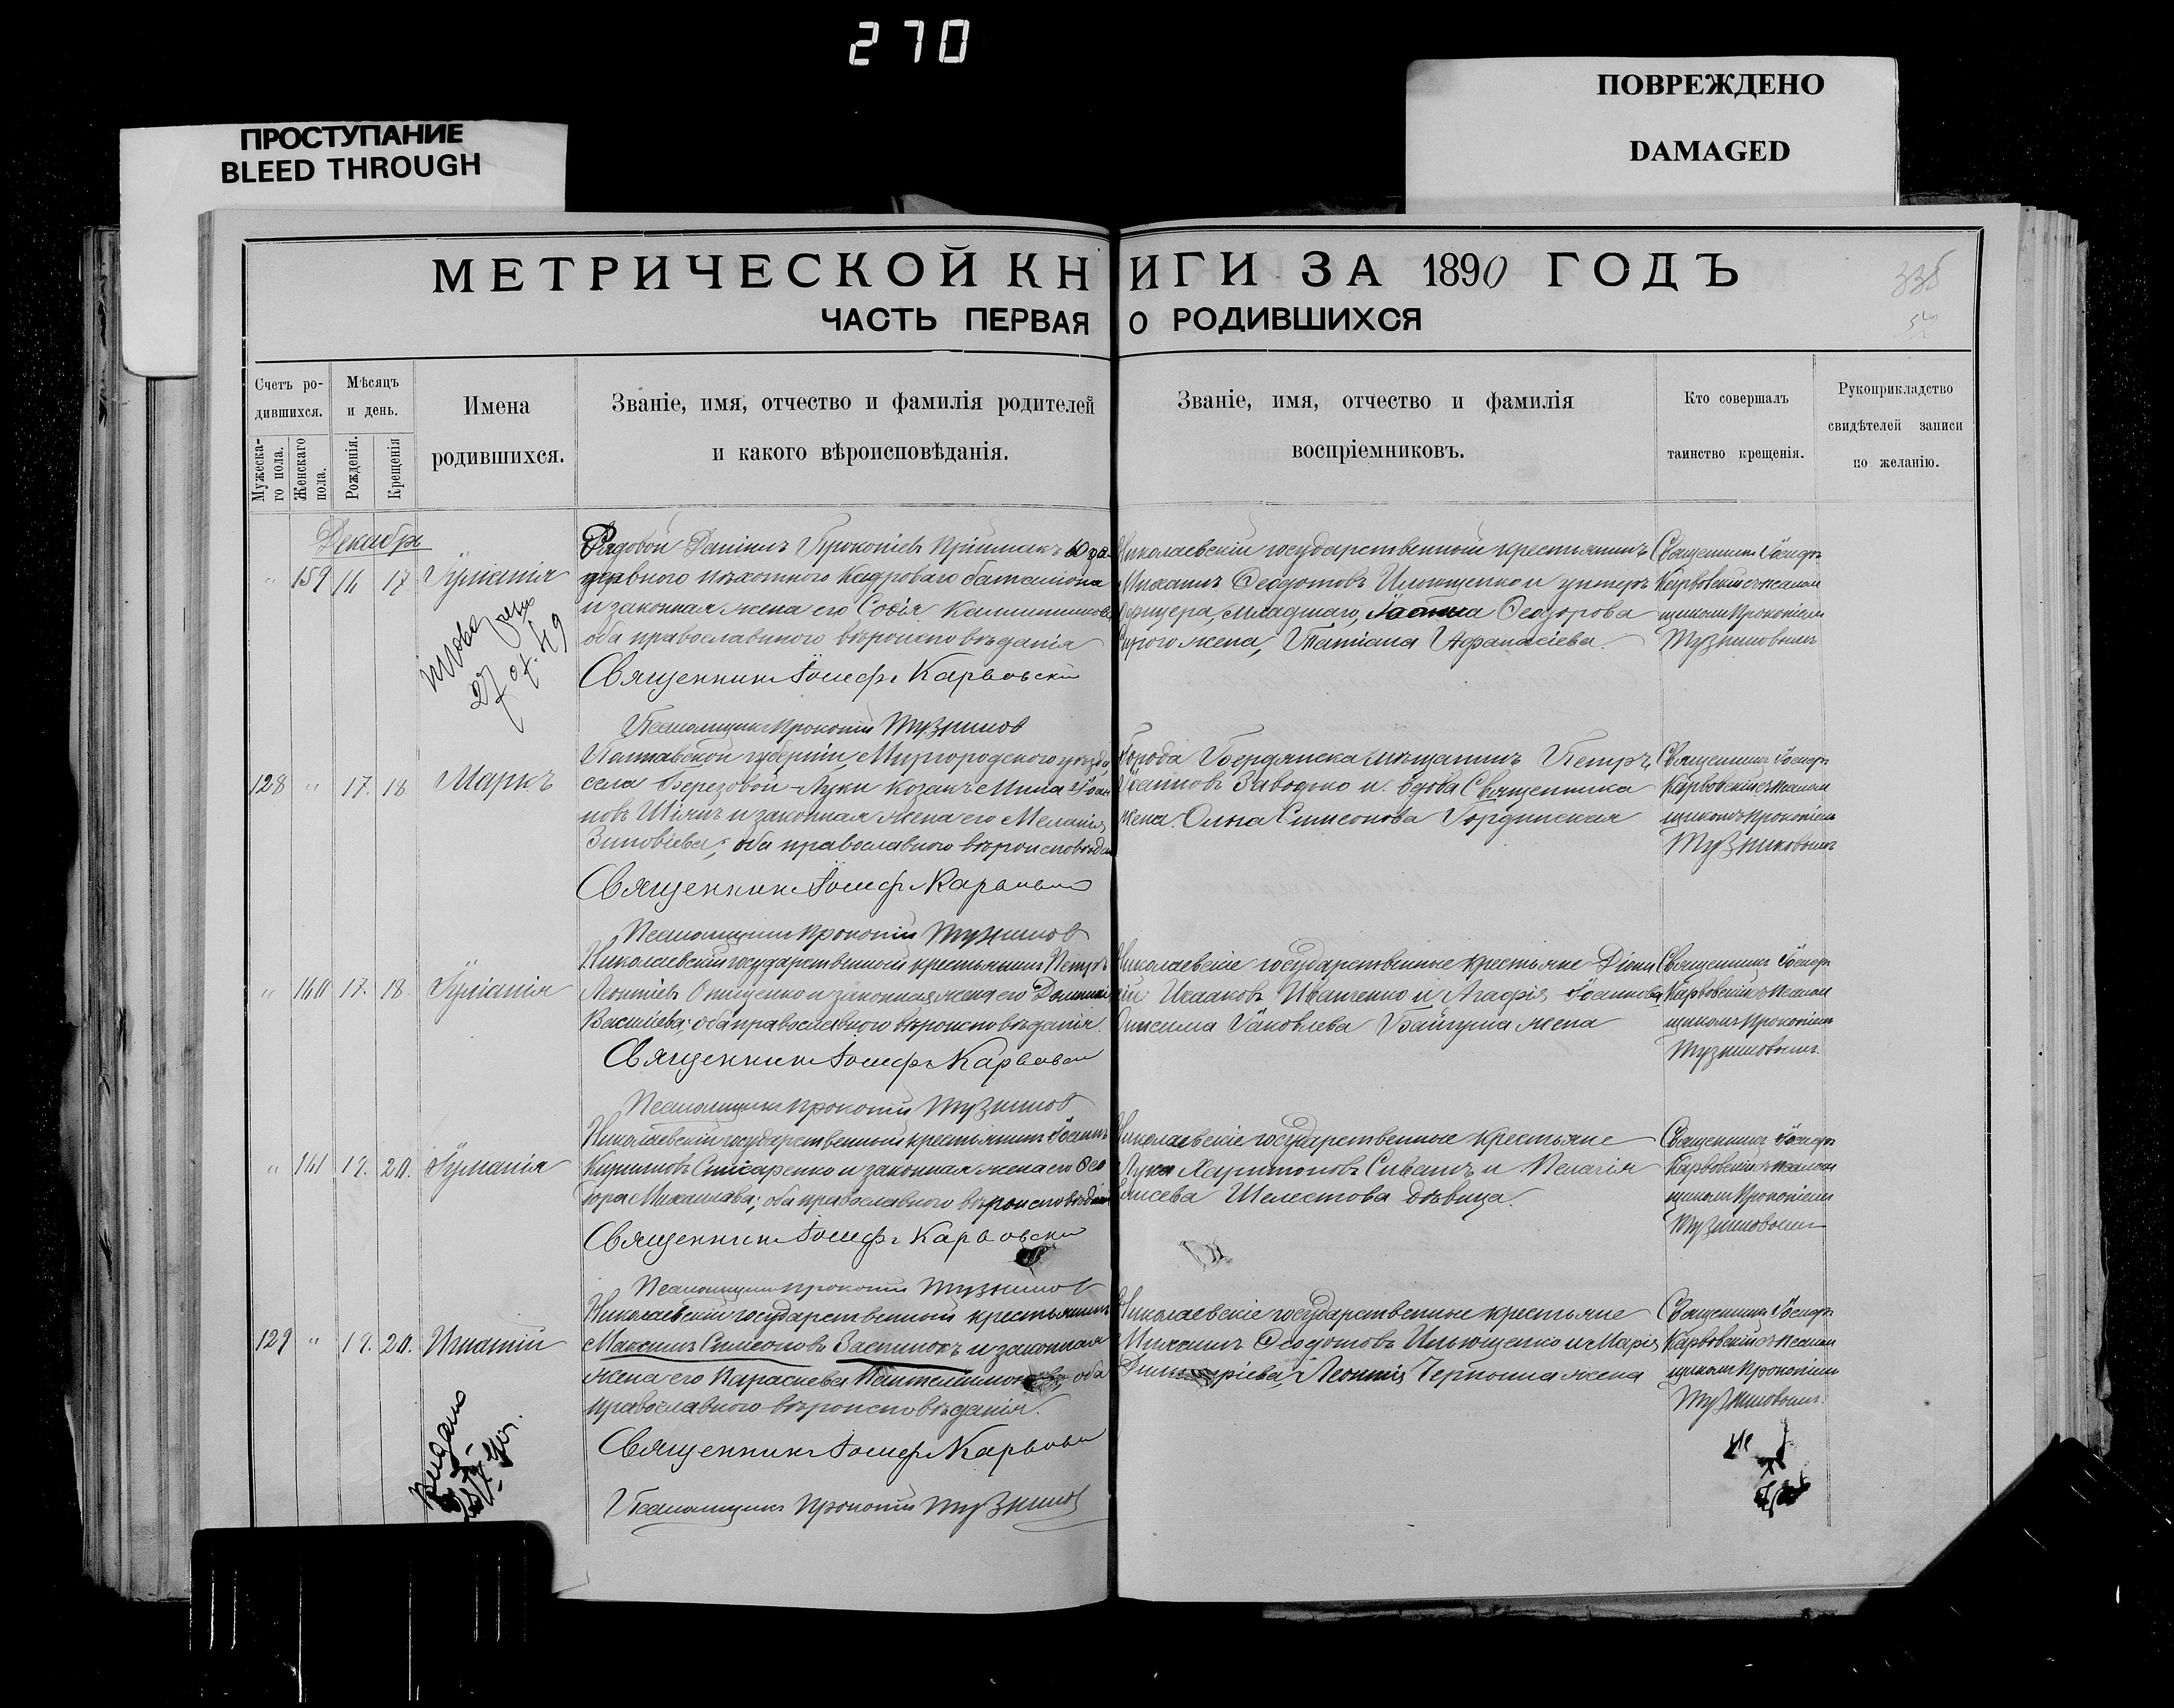 270
ПРОСТУПАНИЕ
BLEED THROUGH
ПОВРЕЖДЕНО
DAMAGED
МЕТРИЧЕСКОЙ КНИГИ ЗА 1890 ГОДЪ
ЧАСТЬ ПЕРВАЯ О РОДИВШИХСЯ
Счетъ ро-
дившихся.
Мужеска-
го пола.
Женскаго
пола.
Мѣсяцъ
и день.
Рожденія.
Крещенія
Имена
родившихся.
Званіе, имя, отчество и фамилія родителей
и какого вѣроисповѣданія.
Званіе, имя, отчество и фамилія
воспріемниковъ.
Кто совершалъ
таинство крещенія.
Рукоприкладство
свидѣтелей записи
по желанію.
Декабрь
" 159 16 17 Іуліанія
Рядовой Даніилъ Прокопіевъ
пѣхотнаго Кадроваго баталіона
и законная жена его Софія
оба православнаго вѣроисповѣданія
Священникъ Іосифъ Карвовскій
Псаломщикъ Прокопій Тузниковъ
Николаевскій государственный крестьянинъ
Михаилъ Ѳеодотовъ Ильющенко и унтеръ
Офицера, младшаго, Іоанна Ѳеодорова
жена, Татіана Афанасіева.
Священникъ Іосифъ
Карвовскій съ псалом
щикомъ Прокопіемъ
Тузниковымъ
128 " 17. 18 Маркъ
Полтавской губерніи Миргородскаго уѣзда
села Березовой-Луки козакъ Мина Іоан
новъ Шіянъ и законная жена его Меланія
Зиновіева; оба православнаго вѣроисповѣдан
Священникъ Іосифъ Карвовскій
Псаломщикъ Прокопій Тузниковъ
Города Бердянска мѣщанинъ Петръ
Іоанновъ Заводько и вдова Священника
жена Олна Симеонова Гординская
Священникъ Іосифъ
Карвовскій съ псалом
щикомъ Прокопіемъ
Тузниковымъ
" 160 17. 18. Іуліанія
Николаевскій государственный крестьянинъ Петръ
Леонтіевъ Онищенко и законная жена его
Васильева; оба православнаго вѣроисповѣданія.
Священникъ Іосифъ Карвовскій
Псаломщикъ Прокопій Тузниковъ
Николаевскіе государственные крестьяне Діони
сій Исааковъ Иванченко и Агафія Іоаннова
Онисима Іаковлева жена
Священникъ Іосифъ
Карвовскій съ псалом
щикомъ Прокопіемъ
Тузниковымъ.
" 161 19. 20. Іуліанія
Николаевскій государственный крестьянинъ Іоаннъ
Кирилловъ Слисаренко и законная жена его Ѳео
дора Михаилова; оба православнаго вѣроисповѣдан
Священникъ Іосифъ Карвовскій
Псаломщикъ Прокопій Тузниковъ
Николаевскіе государственные крестьяне
Лука Харитоновъ и Пелагія
Шелестова дѣвица.
Священникъ Іосифъ
Карвовскій съ псалом
щикомъ Прокопіемъ
Тузниковымъ
129 " 19. 20. Игнатій
Николаевскій государственный крестьянинъ
Максимъ Симеоновъ и законная
жена его Параскева оба
православнаго вѣроисповѣданія.
Священникъ Іосифъ Карвовскій
Псаломщикъ Прокопій Тузниковъ
Николаевскіе государственные крестьяне
Михаилъ Ѳеодотовъ Ильющенко и Марія
Леонтія жена
Священникъ Іосифъ
Карвовскій съ псалом
щикомъ Прокопіемъ
Тузниковымъ.